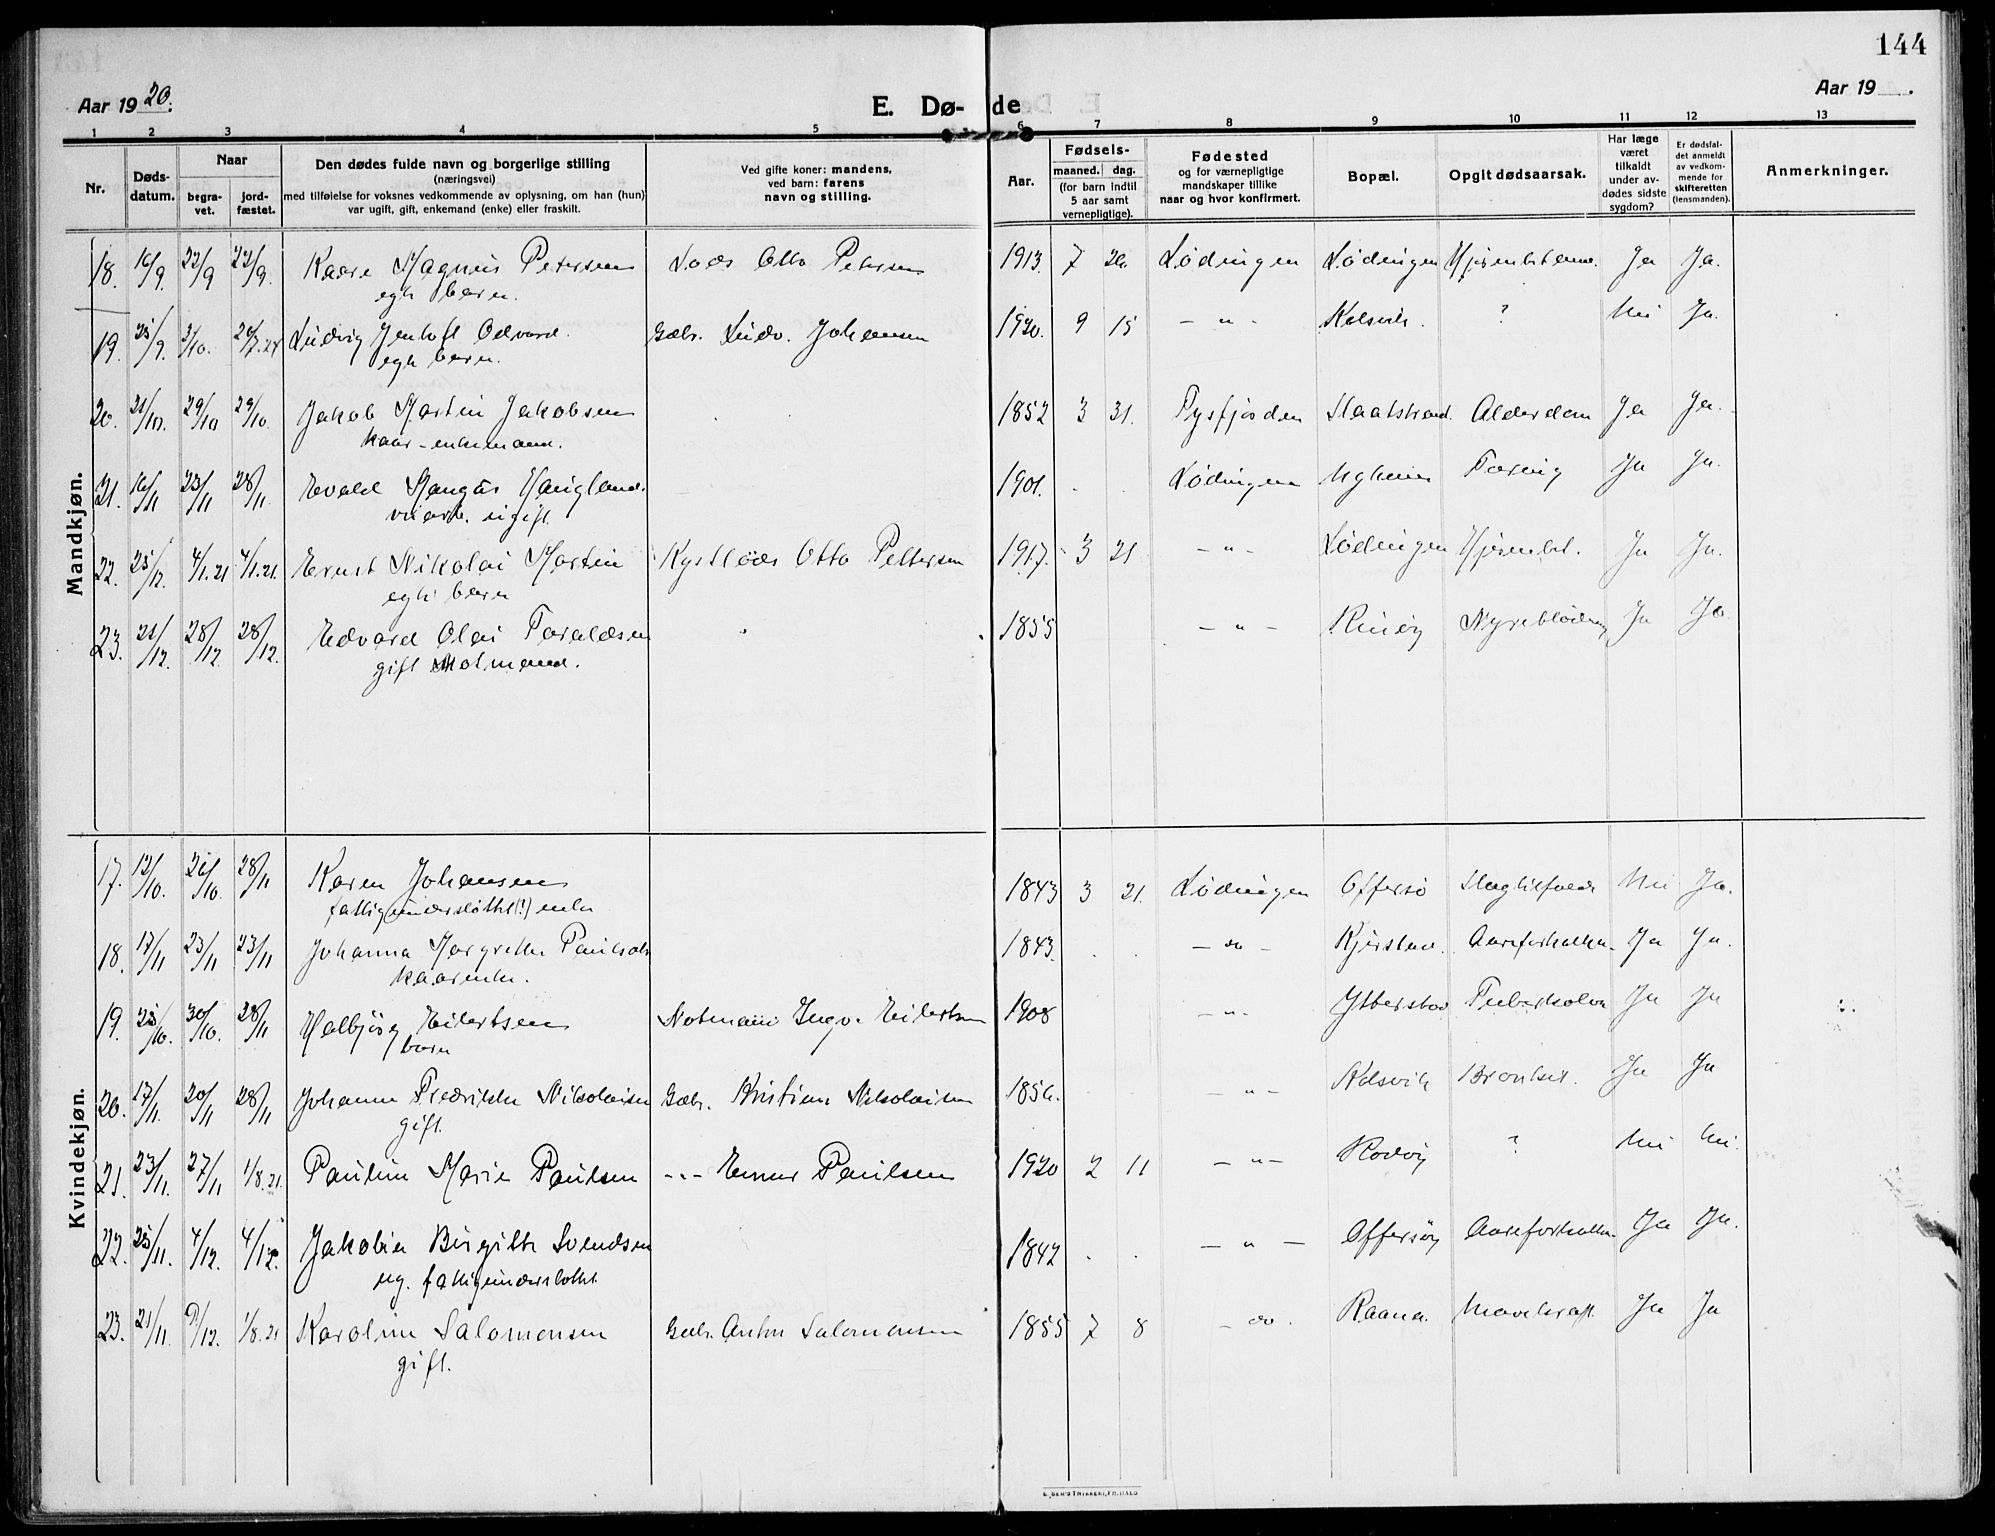 144
Aar 1920.
E. Dø-
de
Aar 19
1 2 3 4 5 6 7 8 9 10 11 12 13
Nr.
Døds-
datum.
Naar
begra-
vet.
jord-
fæstet.
Den dødes fulde navn og borgerlige stilling
(næringsvei)
med tilføielse for voksnes vedkommende av oplysning, om han (hun)
var ugift, gift, enkemand (enke) eller fraskilt.
Ved gifte koner: mandens,
ved barn: farens
navn og stilling.
Aar.
Fødsels-
maaned. dag.
(for barn indtil
5 aar samt
vernepligtige).
Fødested
og for værnepligtige
mandskaper tillike
naar og hvor konfirmert.
Bopæl.
Opgit dødsaarsak.
Har læge
været
tilkaldt
under av-
dødes sidste
sygdom?
Er dødsfal-
det anmeldt
av vedkom-
mende for
skifteretten
(lensmanden).
Anmerkninger.
Mandkjøn.
18. 16/9. 22/9 22/9. Kaare Magnus Petersen Lods Otto Petersen 1913. 7 Lødingen Lødingen Ja Ja.
egte barn.
19. 25/9. 3/10. Ludvig Jentoft Edvard Gbr. Ludv. Johansen 1920. 9 15 - " - Kalsvik. ? Nei Ja.
egte barn.
20. 21/10. 29/10 29/10. Jakob Martin Jakobsen 1852 3 31. Tysfjorden Staalstrand. Alderdom Ja Ja.
kaar-enkemand.
21. 16/11 23/11 28/11. Evald Magnus Haugland. 1901. Lødingen Tæring Ja Ja.
veiarb. ugift.
22. 25/12. 4/1.21 4/1.21. Ernst Nikolai Martin Kystlods Otto Pettersen 1917. 3 21 - " - Lødingen Ja Ja.
egte barn
23. 21/12. 28/12 28/12. Edvard Olai Taraldsen 1855 - " - Rinøy Nyreblødning Ja Ja
gift Notmand.
Kvindekjøn.
17. 12/10. 21/10. 28/11 Karen Johansen 1843 3 21. Lødingen Offersø Slagtilfælde Nei Ja.
fattigunderstøttet(!) enke
18. 17/11 23/11 23/11 Johanna Margrethe Paulsdtr 1843. - " - Aareforkalkn. Ja Ja.
kaarenke.
19. 25/10. 30/10. 28/11 Halbjørg Eilertsen Notmand Ingv. Eilertsen 1908 - " - Ytterstad Tuberkolose Ja Ja
barn
20. 17/11. 20/11 28/11 Johanne Fredrikke Nikolaisen Gbr. Kristian Nikolaisen 1856. - " - Kalsvik Bronkit. Ja Ja
gift.
21. 23/11. 27/11 1/8.21. Pauline Marie Paulsen - - - Paulsen 1920 2 11 - " - Rodøy ? Nei Nei
22. 25/11. 4/12. 4/12. Jakobine Birgitte Svendsen 1842 - " - Offersøy Aareforkalkn. Ja Ja.
ug. fattigunderstøttet
23. 21/11. 9/12. 1/8.21 Karoline Salomonsen Gbr. Anton Salomonsen 1855 7 8 - " - Raana. Mavekræft. Ja Ja
gift.